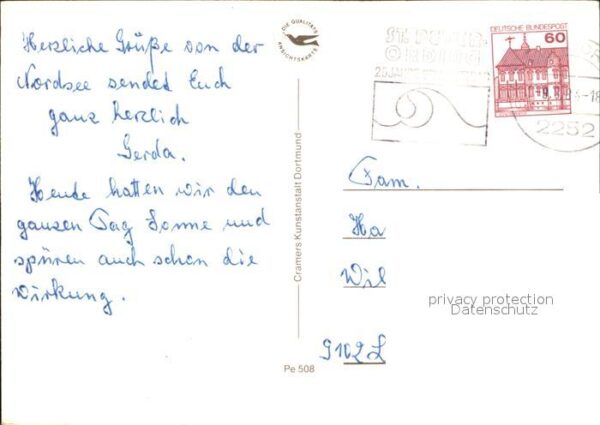 Herzliche Grüße von der
Nordsee sendet Euch
ganz herzlich
Gerda.
Heute hatten wir den
ganzen Tag Sonne und
spüren auch schon die
Wirkung.
DIE QUALITÄTS
ANSICHTSKARTE
Cramers Kunstanstalt Dortmund
Pe 508
ST. PETER-
ORDING
25 JAHRE
DEUTSCHE BUNDESPOST
60
2252
Fam.
Ha
Wil
privacy protection
Datenschutz